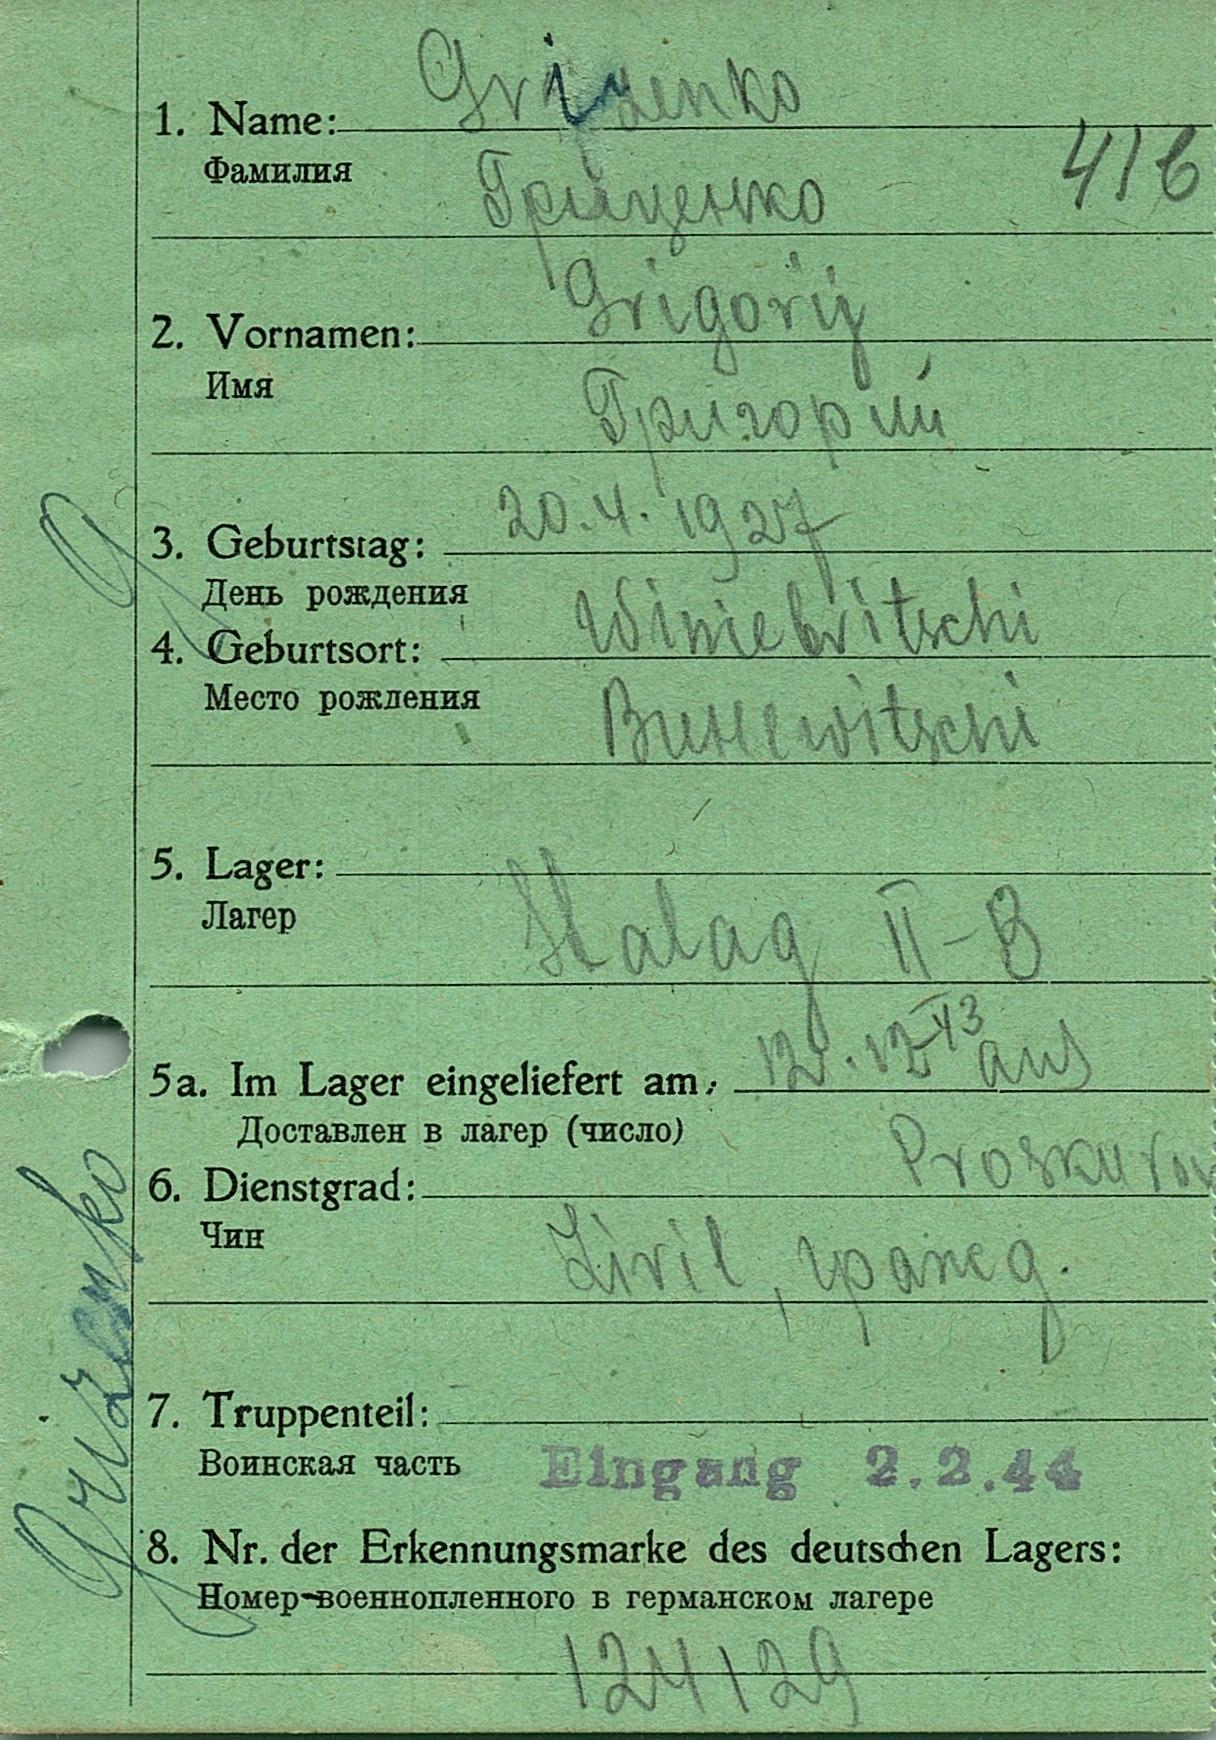 Grizenko
1. Name:
Фамилия
416
Гриценко
Grigorij
2. Vornamen:
Имя
Григорий
20.4.1927
3. Geburtstag:
День рождения
Winiebritschi
4. Geburtsort:
Место рождения
5. Lager:
Лагер
Stalag II-B
12.12 43 aus
5a. Im Lager eingeliefert am:
Доставлен в лагер (число)
Proskurow
6. Dienstgrad:
Чин
Zivil,
7. Truppenteil:
Воинская часть
Eingang 2.2.44
8. Nr. der Erkennungsmarke des deutschen Lagers:
Номер военнопленного в германском лагере
124129
G
Grizenko